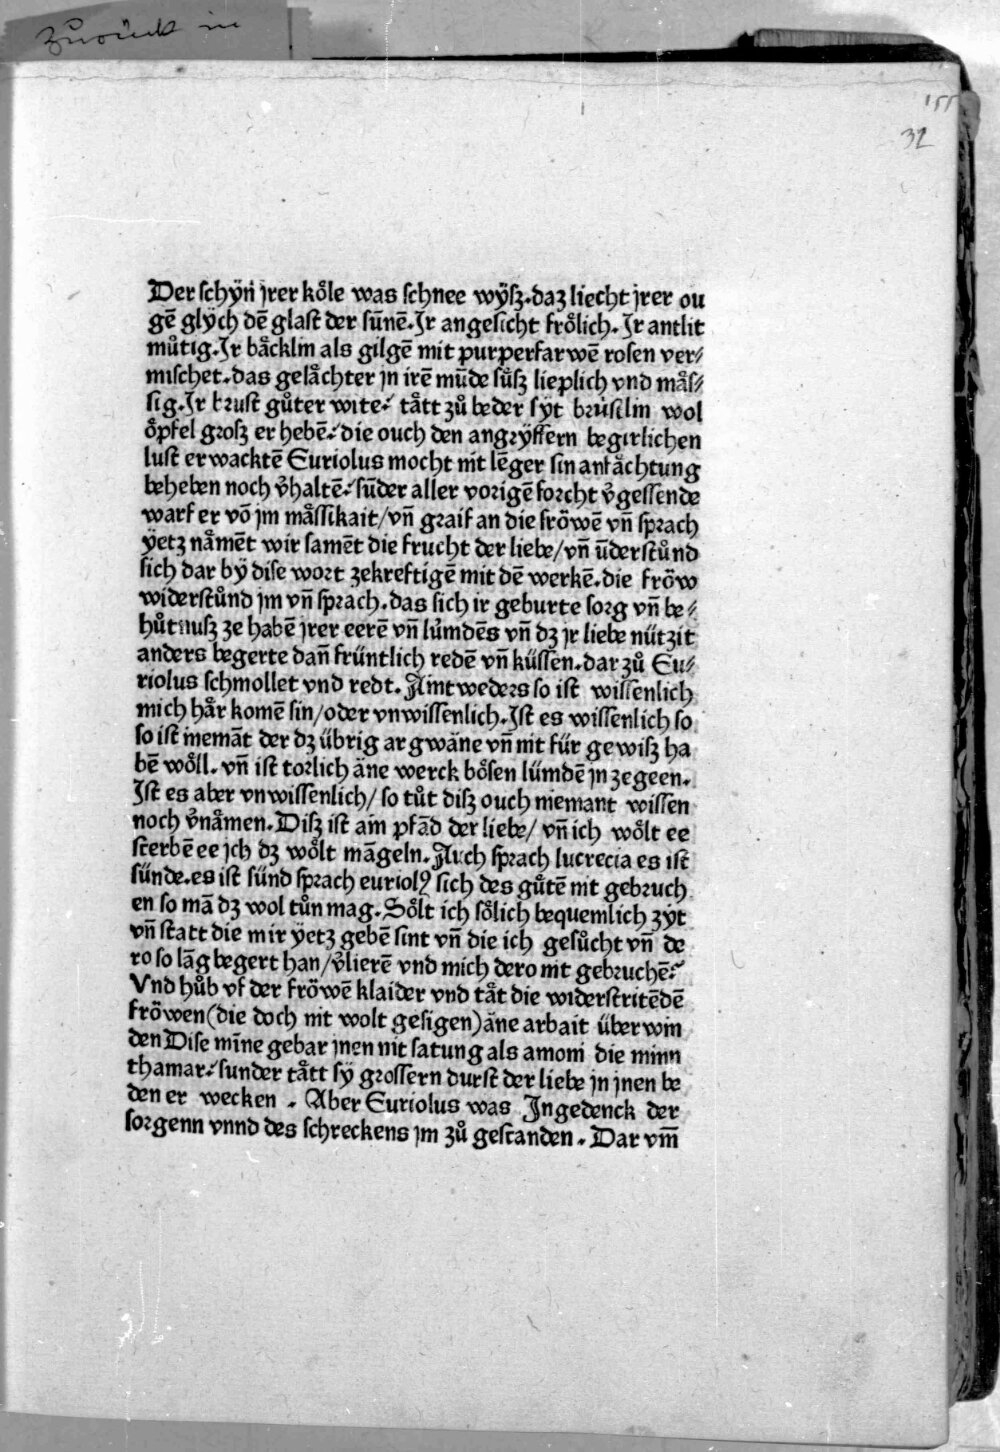 zuruck in
155
32
Der schÿn jrer kőle was schnee wÿsz.daz liecht jrer ou
gē glÿch dē glast der sūnē.Jr angesicht frőlich.Jr antlit
můtig.Jr båcklin als gilgē mit purperfarwē rosen ver⸗
mischet.das gelåchter jn irē mūde sůsz lieplich vnd mås⸗
sig.Jr brust gůter wite⸗ tått zů beder syt brüstlin wol
őpfel grosz erhebē⸗die ouch den angrÿffern begirlichen
lust erwacktē Euriolus mocht nit lēger sin antåchtung
beheben noch v̄haltē⸗sūder aller vorigē forcht v̄gessende
warf er vō jm måssikait/vn̄ graif an die frőwē vn̄ sprach
ÿetz nåmēt wir samēt die frucht der liebe/vn̄ ūderstůnd
sich dar bÿ dise wort zekreftigē mit dē werkē.die frőw
widerstůnd jm vn̄ sprach.das sich ir geburte sorg vn̄ be⸗
hůtnusz ze habē jrer eerē vn̄ lümdēs vn̄ dz jr liebe nützit
anders begerte dan̄ früntlich redē vn̄ küssen.dar zů Eu⸗
riolus schmollet vnd redt.Aintweders so ist wissenlich
mich hår komē sin/oder vnwissenlich.Jst es wissenlich so
so ist niemāt der dz übrig argwäne vn̄ nit für gewisz ha
bē wőll.vn̄ ist torlich äne werck bősen lümdē jn zegeen.
Jst es aber vnwissenlich/so tůt disz ouch niemant wissen
noch v̄nåmen.Disz ist ain pfād der liebe/vn̄ ich wőlt ee
sterbē ee jch dz wőlt māgeln.Auch sprach lucrecia es ist
sünde.es ist sünd sprach euriolꝰ sich des gůtē nit gebruch
en so mā dz wol tůn mag.Sőlt ich sőlich bequemlich zÿt
vn̄ statt die mir ÿetz gebē sint vn̄ die ich gesůcht vn̄ de
ro so lāg begert han/v̄lierē vnd mich dero nit gebruchē⸗
Vnd hůb vf der frőwē klaider vnd tåt die widerstritēdē
frőwen(die doch nit wolt gesigen)äne arbait überwin
den Dise mine gebar jnen nit satung als amoni die minn
thamar⸗sunder tått sÿ grossern durst der liebe jn jnen be
den er wecken . Aber Euriolus was Jngedenck der
sorgenn vnnd des schreckens jm zů gestanden . Dar vm̄